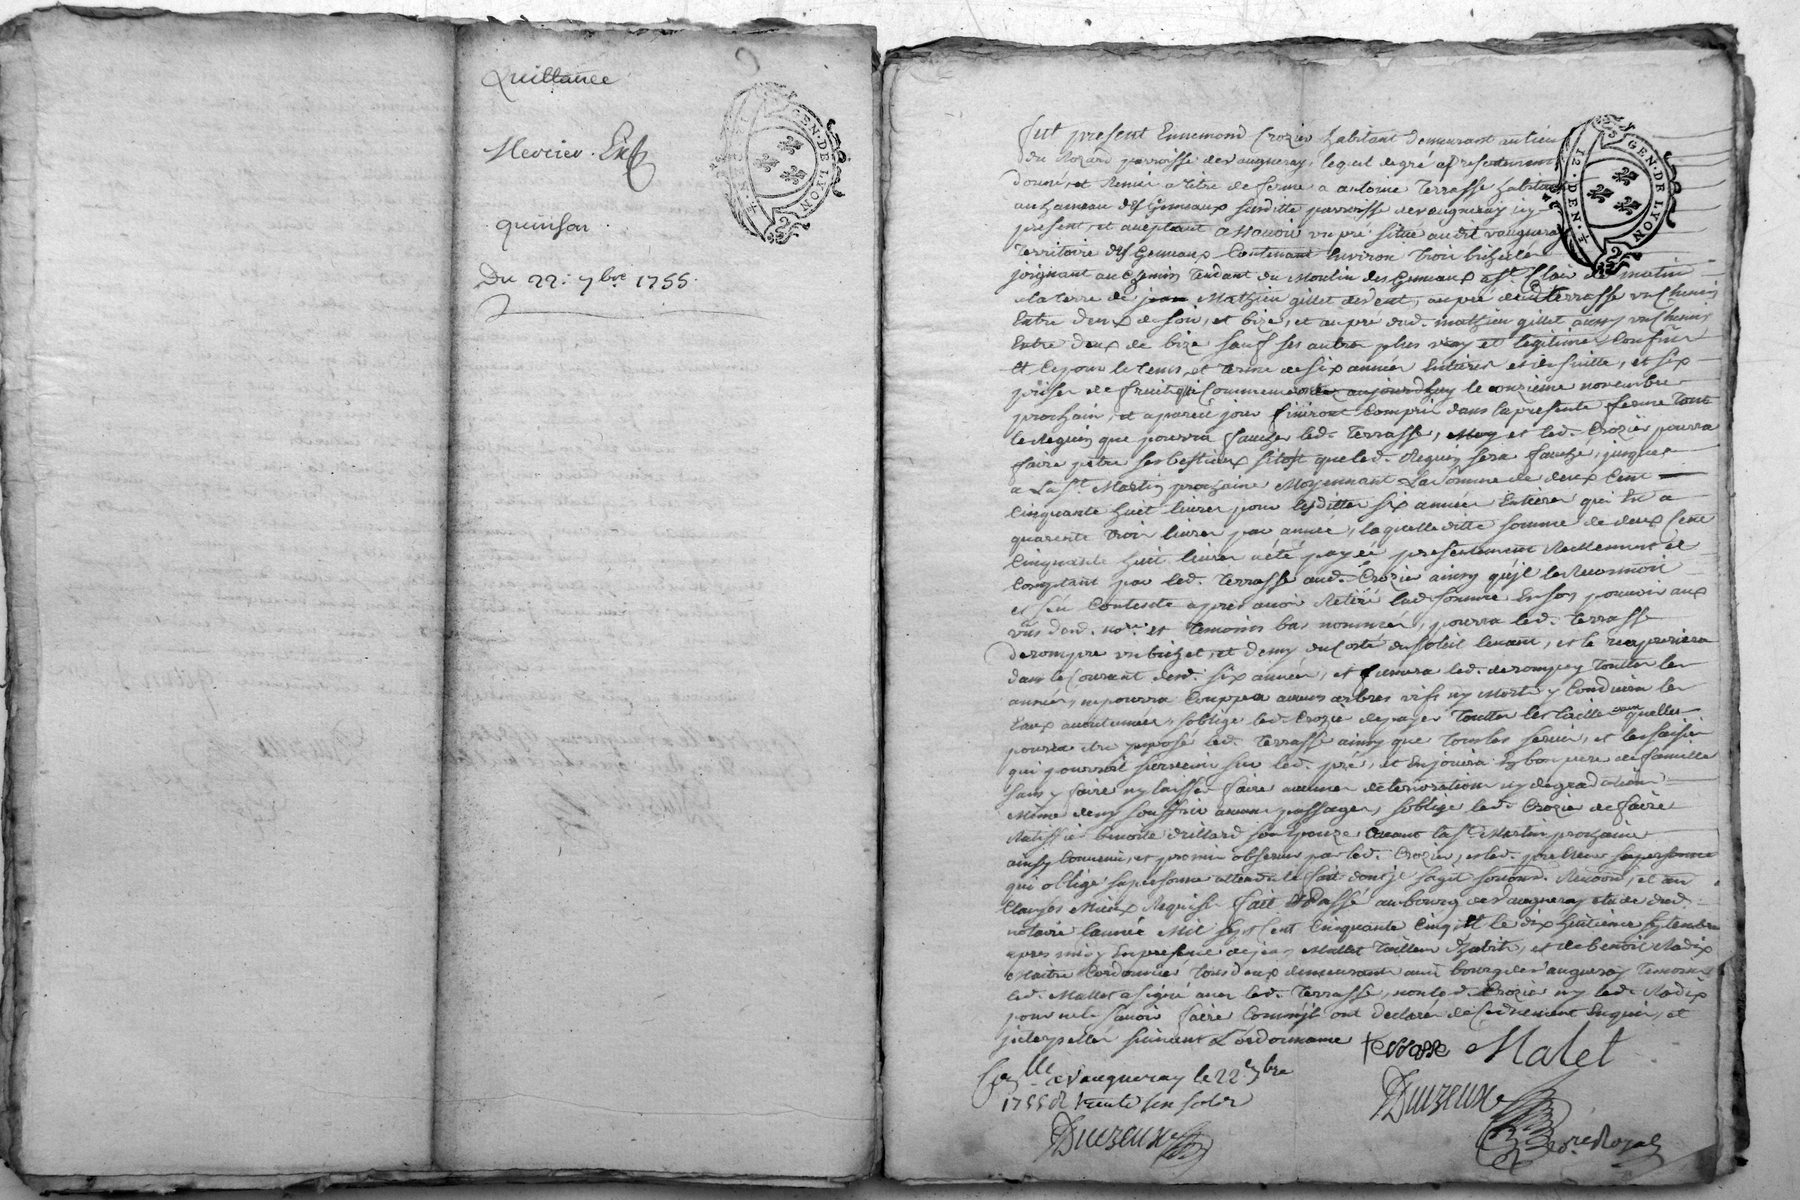 Quittance
Mercier
quinson
Du 22: 7bre 1755.
GEN · DE LYON
GEN · DE LYON
12 · DEN ·
fut present Ennemond Crozier habitant demeurant au lieu
du Rozard parroisse de vaugneray, lequel de gré a presentement
donné, et Remis a titre de ferme a antoine Terrasse habitant
au hameau des Gemeaux susditte parroisse de vaugneray icy
present, et aceptant assavoir un pré situé audit vaugneray
Territoire des Gemeaux Contenant Environ trois bichelées
joignant au Chemin Tendant du Moulin des Gemeaux a St. Clair de matin
la terre de jean Mathieu gillet de vent, au pré dud terrasse un Chemin
Entre deux de soir, et bize, et au pré dud. mathieu gillet aussy un Chemin
Entre deux de bize sauf ses autres plus vray et legitimes Confins
Et Ce pour le tems, et terme de six années Entieres et de suitte, et six
prises de fruits qui Commenceront aujourdhuy le onzieme novembre
prochain, et a pareil jour finiront Compris dans la presente ferme tout
le Reguin que pourra faucher led. Terrasse, et led. Crozier pourra
faire paitre ses bestiaux sitost que led. Reguin sera fauché, jusques
a La St. Martin prochaine Moyennant La somme de deux Cent
Cinquante huit livres pour lesdittes six années Entieres qui Est a
quarente trois livres par année, laquelle ditte somme de deux Cent
Cinquante huit livres a été payée presentement Reellement et
Comptant par led. Terrasse aud. Crozier ainsy qu'jl le Reconnoit
et s'en Contente apres avoir Retiré lad somme En son pouvoir aux
vûs dud. nore. et temoins bas nommés, pourra led. Terrasse
derompre un bichet, et demy du Costé du soleil levant, et le
dans le Courant desd. six années, et fumera led. derompey Touttes les
années, ne pourra Coupper aucuns arbres vifs ny Morts y Conduira les
Eaux accoutumées, s'oblige led. Crozier de payer Touttes les tailles auxquelles
pourra etre jmposé led. Terrasse ainsy que tous les servis, et les
qui pourroit survenir sur led. pré, et En jouira En bon pere de famille
sans y faire ny laisser faire aucunes deteriorations ny degradations
Même de ny souffrir aucuns passages, s'oblige led. Crozier de faire
Ratiffier benoite drillard son Epouze avant la St. Martin prochaine
ainsy Convenu, et promis observer par led. Crozier, et led.
qui oblige sa personne attendu le fait dont jl s'agit Renon, et au
Clauses Mieux Requises fait Et Passé au bourg de vaugneray Etude dud.
notaire l'année Mil sept Cent Cinquante Cinq, Et le dix huitieme septembre
apres midy En presence de jean Mallet Tailleur d'habits, et de benoit Radix
Maitre Cordonnier tous deux demeurants aud. bourg de vaugneray Temoins
led. Mallet a signé avec led. Terrasse, non led. Crozier ny led. Radix
pour ne le savoir faire Comm'jls ont declaré de Ce duement Enquis, et
jnterpellés suivant L'ordonnance terrasse Malet
Collé a Vaugneray le 22. 7bre
1755 R trente six sols
Duizeux
Duizeux
nore Royal